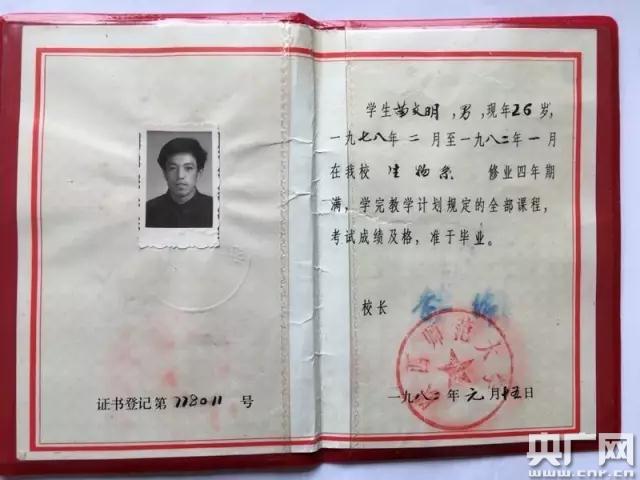 证书登记第 778011 号
学生苗文明，男，现年26岁，
一九七八年二月至一九八二年一月
在我校 生物系 修业四年期
满，学完教学计划规定的全部课程，
考试成绩及格，准于毕业。
校长
师范大
一九八二年元月十五日
央广网
www.cnr.cn